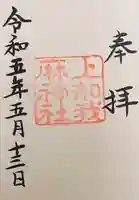 奉拝
上知我麻神社
令和五年五月十三日